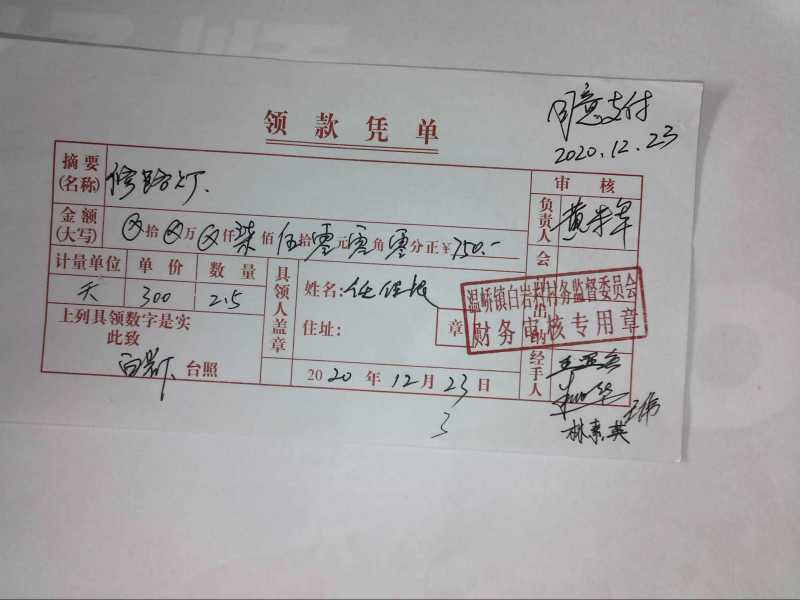 领款凭单
同意支付
2020.12.23
摘要(名称) 修路灯.
审核
金额(大写) ⊗拾⊗万⊗仟柒佰伍拾零元零角零分正¥750.-
负责人
计量单位 单价 数量
天 300 2.5
具领人盖章
姓名:
住址:
章
会
出纳
温峤镇白岩村村务监督委员会
财务审核专用章
上列具领数字是实
此致
台照
2020年12月23日
经手人
3
林素英